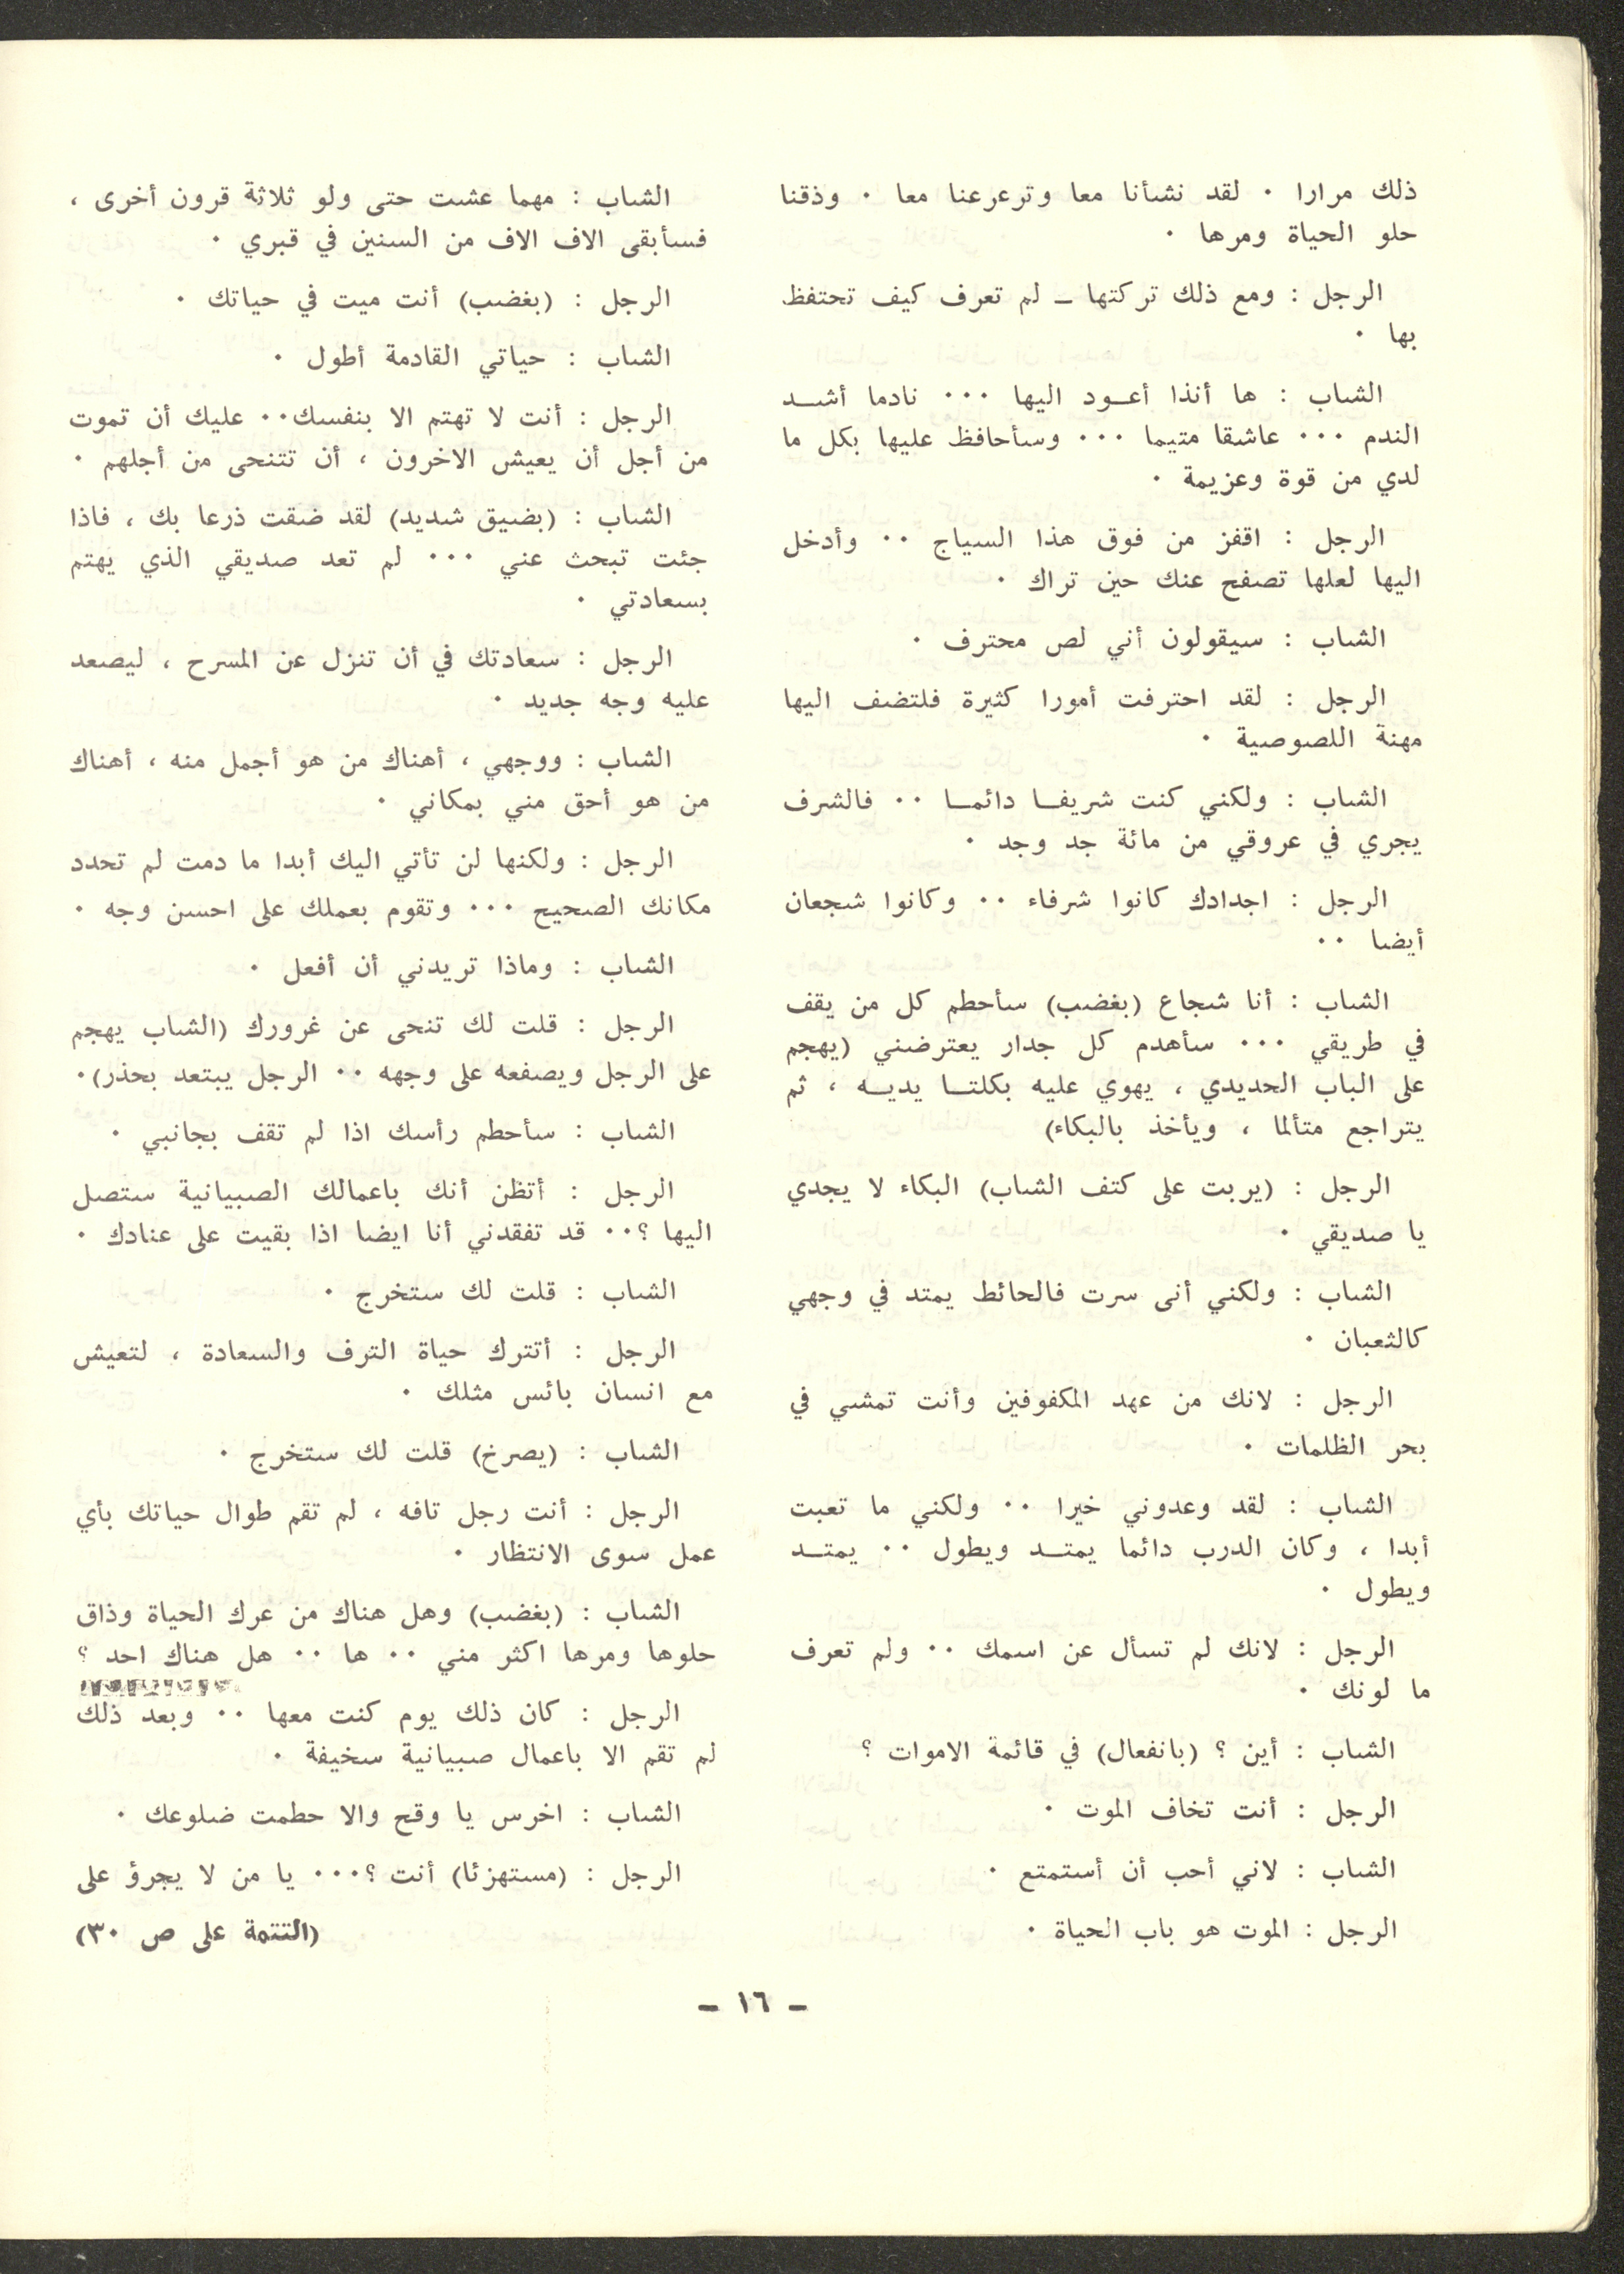 ذلك مرارا . لقد نشأنا معا وترعرعنا معا . وذقنا
حلو الحياة ومرها .
الرجل : ومع ذلك تركتها ــ لم تعرف كيف تحتفظ
بها .
الشاب : ها أنذا أعــود اليها ... نادما أشــد
الندم ... عاشقا متيما ... وسأحافظ عليها بكل ما
لدي من قوة وعزيمة .
الرجل : اقفز من فوق هذا السياج .. وأدخل
اليها لعلها تصفح عنك حين تراك .
الشاب : سيقولون أني لص محترف .
الرجل : لقد احترفت أمورا كثيرة فلتضف اليها
مهنة اللصوصية .
الشاب : ولكني كنت شريفــا دائمــا .. فالشرف
يجري في عروقي من مائة جد وجد .
الرجل : اجدادك كانوا شرفاء .. وكانوا شجعان
أيضا ..
الشاب : أنا شجاع (بغضب) سأحطم كل من يقف
في طريقي ... سأهدم كل جدار يعترضني (يهجم
على الباب الحديدي ، يهوي عليه بكلتــا يديــه ، ثم
يتراجع متألما ، ويأخذ بالبكاء)
الرجل : (يربت على كتف الشاب) البكاء لا يجدي
يا صديقي .
الشاب : ولكني أنى سرت فالحائط يمتد في وجهي
كالثعبان .
الرجل : لانك من عهد المكفوفين وأنت تمشي في
بحر الظلمات .
الشاب : لقد وعدوني خيرا .. ولكني ما تعبت
أبدا ، وكان الدرب دائما يمتــد ويطول .. يمتــد
ويطول .
الرجل : لانك لم تسأل عن اسمك .. ولم تعرف
ما لونك .
الشاب : أين ؟ (بانفعال) في قائمة الاموات ؟
الرجل : أنت تخاف الموت .
الشاب : لاني أحب أن أستمتع .
الرجل : الموت هو باب الحياة .
الشاب : مهما عشت حتى ولو ثلاثة قرون أخرى ،
فسأبقى الاف الاف من السنين في قبري .
الرجل : (بغضب) أنت ميت في حياتك .
الشاب : حياتي القادمة أطول .
الرجل : أنت لا تهتم الا بنفسك.. عليك أن تموت
من أجل أن يعيش الاخرون ، أن تتنحى من أجلهم .
الشاب : (بضيق شديد) لقد ضقت ذرعا بك ، فاذا
جئت تبحث عني ... لم تعد صديقي الذي يهتم
بسعادتي .
الرجل : سعادتك في أن تنزل عن المسرح ، ليصعد
عليه وجه جديد .
الشاب : ووجهي ، أهناك من هو أجمل منه ، أهناك
من هو أحق مني بمكاني .
الرجل : ولكنها لن تأتي اليك أبدا ما دمت لم تحدد
مكانك الصحيح ... وتقوم بعملك على احسن وجه .
الشاب : وماذا تريدني أن أفعل .
الرجل : قلت لك تنحى عن غرورك (الشاب يهجم
على الرجل ويصفعه على وجهه .. الرجل يبتعد بحذر).
الشاب : سأحطم رأسك اذا لم تقف بجانبي .
الرجل : أتظن أنك باعمالك الصبيانية ستصل
اليها ؟.. قد تفقدني أنا ايضا اذا بقيت على عنادك .
الشاب : قلت لك ستخرج .
الرجل : أتترك حياة الترف والسعادة ، لتعيش
مع انسان بائس مثلك .
الشاب : (يصرخ) قلت لك ستخرج .
الرجل : أنت رجل تافه ، لم تقم طوال حياتك بأي
عمل سوى الانتظار .
الشاب : (بغضب) وهل هناك من عرك الحياة وذاق
حلوها ومرها اكثر مني .. ها .. هل هناك احد ؟
الرجل : كان ذلك يوم كنت معها .. وبعد ذلك
لم تقم الا باعمال صبيانية سخيفة .
الشاب : اخرس يا وقح والا حطمت ضلوعك .
الرجل : (مستهزئا) أنت ؟... يا من لا يجرؤ على
(التتمة على ص ٣٠)
ــ ١٦ ــ